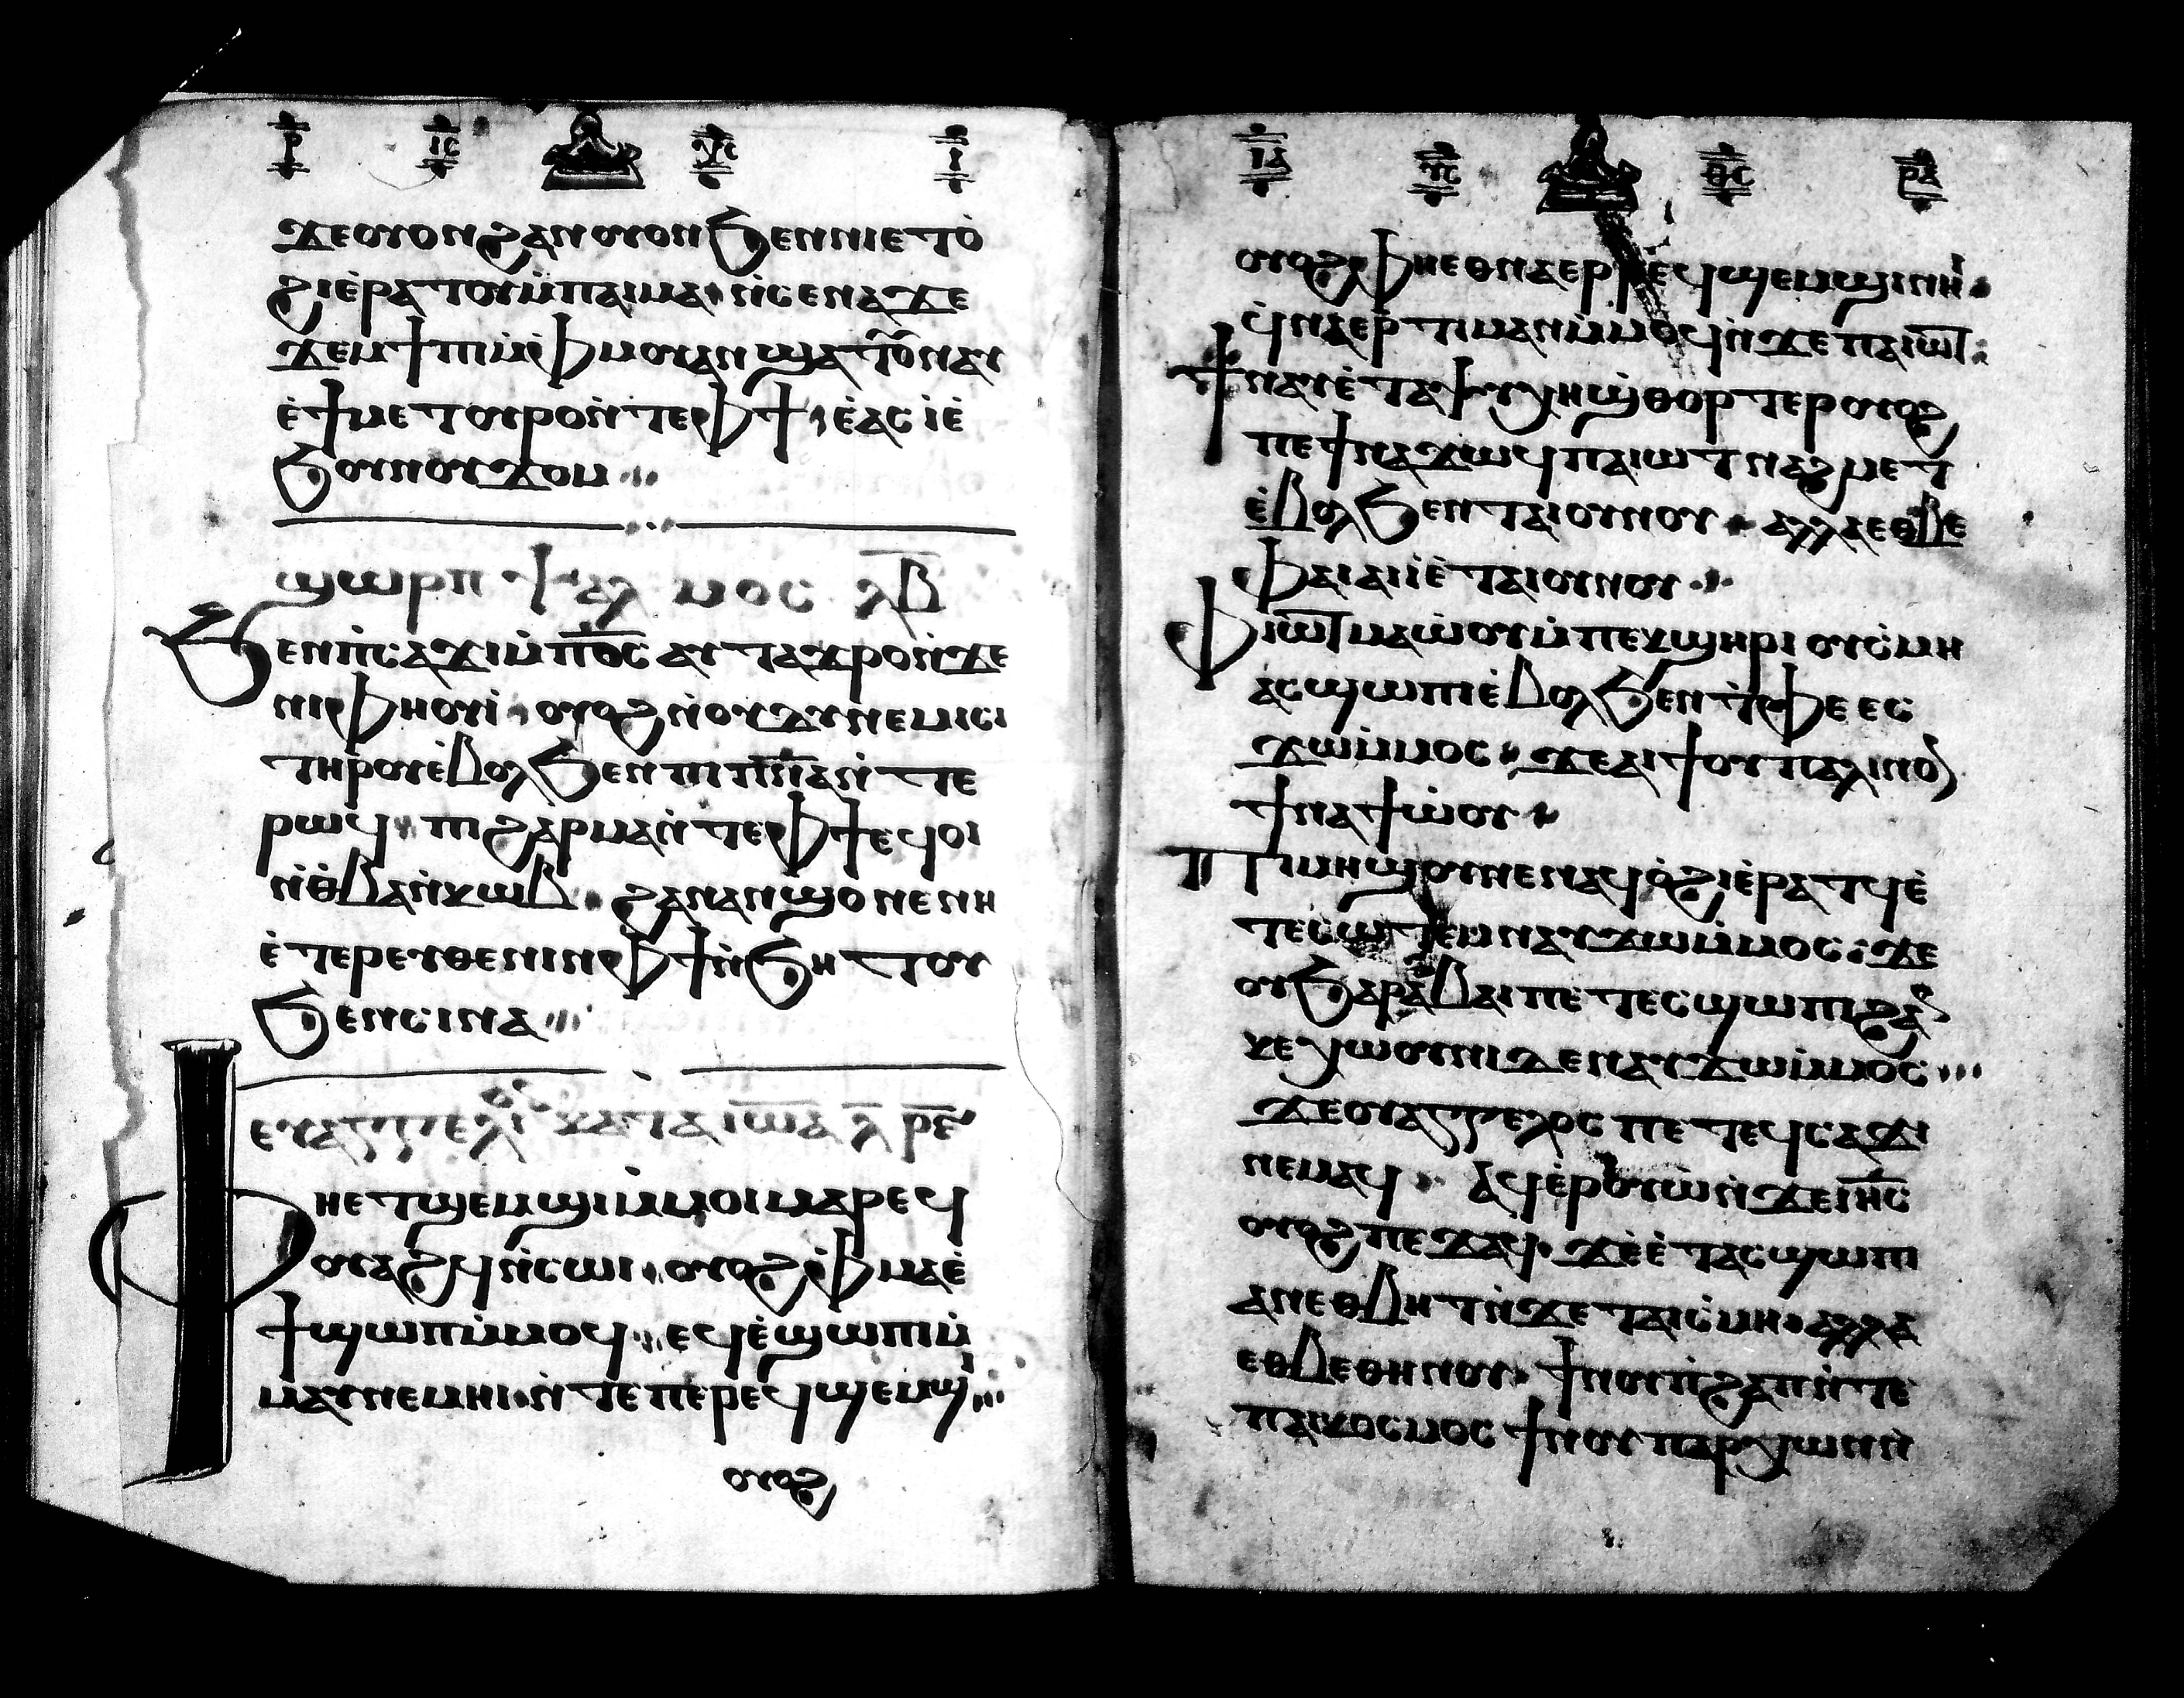 ⲣ ⲓ̅ⲥ̅ ⲭ̅ⲥ̅ ⲓ
ϫⲉⲟⲩⲟⲛϩⲁⲛⲟⲩⲟⲛϧⲉⲛⲛⲓⲉⲧⲟ̀
ϩⲓⲉ̀ⲣⲁⲧⲟⲩⲙ̀ⲡⲁⲓⲙⲁ· ⲛ̀ⲥⲉⲛⲁϫⲉ
ϫⲉⲙϯⲡⲓⲙ̀ⲫⲙⲟⲩⲁⲛϣⲁⲧⲟⲩⲛⲁⲩ
ⲉ̀ϯⲙⲉⲧⲟⲩⲣⲟⲛ̀ⲧⲉⲫϯ ⲉ̀ⲁⲥⲓ̀ⲉ̀
ϧⲟⲩⲛⲟⲩϫⲟⲙ
ϣⲱⲣⲡ ⲯⲁⲗⲙⲟⲥ ⲗⲃ̅
ϧⲉⲛⲡ̀ⲥⲁϫⲓⲙ̀ⲡϭⲟ̅ⲥ̅ ⲁⲩⲧⲁϫⲣⲟⲛ̀ϫⲉ
ⲛⲓⲫⲏⲟⲩⲓ̀· ⲟⲩⲟϩⲛ̀ⲟⲩϫⲩⲛⲉⲙⲓⲥⲓ
ⲧⲏⲣⲟⲩⲉ̀ⲃⲟⲗϧⲉⲛⲡⲓⲡ̅ⲛ̅ⲁⲛ̀ⲧⲉ
ⲣⲱϥ· ⲡⲓϩⲁⲣⲙⲁⲛ̀ⲧⲉⲫϯⲉϥⲟⲓ
ⲛ̀ⲑ̀ⲃⲁⲛ̀ⲕⲱⲃ· ϩⲁⲛⲁⲛϣⲟⲛⲉⲛⲏ
ⲉ̀ⲧⲉⲣⲉⲩⲑⲉⲛⲓⲛⲫϯⲛ̀ϧⲏⲧⲟⲩ
ϧⲉⲛⲥⲓⲛⲁ
ⲉⲩⲁⲅⲅⲉⲗⲓⲟⲥ ⲕⲁⲧⲁ ⲓⲱ̅ⲁ ⲗ̅ ⲣ̅ⲉ̅
ⲫⲏⲉⲧϣⲉⲙϣⲓⲙ̀ⲙⲟⲓⲙⲁⲣⲉϥ
ⲟⲩⲁϩϥⲛ̀ⲥⲱⲓ· ⲟⲩⲟϩⲫ̀ⲙⲁⲉ̀
ϯϣⲱⲡⲙ̀ⲙⲟϥ· ⲉϥⲉ̀ϣⲱⲡⲓⲙ̀
ⲙⲁⲩⲛⲉⲙⲏⲓ· ⲛ̀ⲧⲉⲡⲉⲣⲉϥϣⲉⲙϣⲓ
ⲟⲩⲟϩ
ⲓⲁ ⲩ̅ⲥ̅ ⲑ̅ⲥ̅ ⲣⲁ
ⲟⲩⲟϩⲫⲏⲉⲑⲛⲁⲉⲣⲣⲉϥϣⲉⲙϣⲓⲛⲏⲓ·
ϥ̀ⲛⲁⲉⲣⲧⲓⲙⲁⲛⲙ̀ⲙⲟϥⲛ̀ϫⲉⲡⲁⲓⲱ̅ⲧ̅
ϯⲛⲁⲩⲉ̀ⲧⲁⲯⲩⲭⲏϣ̀ⲑⲟⲣⲧⲉⲣⲟⲩⲟϩ
ⲡⲉϯⲛⲁϫⲱϥⲡⲁⲓⲱⲧⲛⲁϩⲙⲉⲧ
ⲉ̀ⲃⲟⲗϧⲉⲛⲧⲁⲓⲟⲩⲛⲟⲩ· ⲁⲗⲗⲁⲉⲑⲃⲉ
ⲫⲁⲓⲁⲓⲓ̀ⲉ̀ⲧⲁⲓⲟⲩⲛⲟⲩ·
ⲫⲓⲱ̅ⲧ̅ⲙⲁⲱ̀ⲟⲩⲙ̀ⲡⲉⲕϣⲏⲣⲓⲟⲩⲥ̀ⲙⲏ
ⲁⲥϣⲱⲡⲓⲉ̀ⲃⲟⲗϧⲉⲛⲧ̀ⲫⲉⲉⲥ
ϫⲱⲙ̀ⲙⲟⲥ· ϫⲉⲁⲓϯⲟⲩⲡⲁⲗⲓⲛⲟⲛ
ϯⲛⲁϯⲱ̀ⲟⲩ·
ⲡⲓⲙⲏϣⲟⲩⲛⲉⲛⲁϥⲟ̀ϩⲓⲉ̀ⲣⲁⲧϥⲉ̀
ⲧⲉⲥⲱⲧⲉⲙⲛⲁⲩϫⲱⲙ̀ⲙⲟⲥ· ϫⲉ
ⲟⲩϧⲁⲣⲁⲃⲁⲓⲡⲉⲧⲉⲥϣⲱⲡⲓϩⲁⲛ
ⲕⲉⲭⲱⲟⲩⲛⲓϫⲉⲛⲁⲩϫⲱⲙ̀ⲙⲟⲥ
ϫⲉⲟⲩⲁⲅⲅⲉⲗⲟⲥⲡⲉⲧⲉϥⲥⲁϫⲓ
ⲛⲉⲙⲁϥ· ⲁϥⲉ̀ⲣⲟⲩⲱ̀ⲛ̀ϫⲉⲓⲏ̅ⲥ̅
ⲟⲩⲟϩⲡⲉϫⲁϥ· ϫⲉⲉ̀ⲧⲁⲥϣⲱⲡⲓ
ⲁⲛⲉⲑⲃⲏⲧⲛ̀ϫⲉⲧⲁⲓⲥ̀ⲙⲏ· ⲁⲗⲗⲁ
ⲉⲑⲃⲉⲑⲏⲛⲟⲩ· ϯⲛⲟⲩⲡ̀ϩⲁⲡⲛ̀ⲧⲉ
ⲡⲁⲓⲕⲟⲥⲙⲟⲥϯⲛⲟⲩⲡⲁⲣⲭⲱⲛⲛ̀